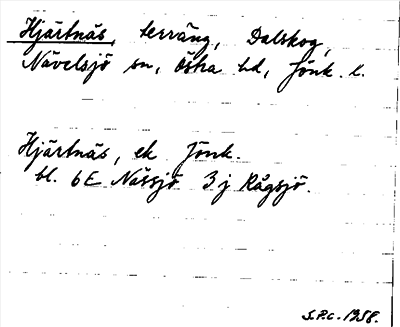 Hjärtnäs, terräng, Dalskog,
Nävelsjö sn, Östra hd, Jönk. l.
Hjärtnäs, ek Jönk.
bl. 6E Nässjö 3j Rågsjö.
S.P.C. 1958.